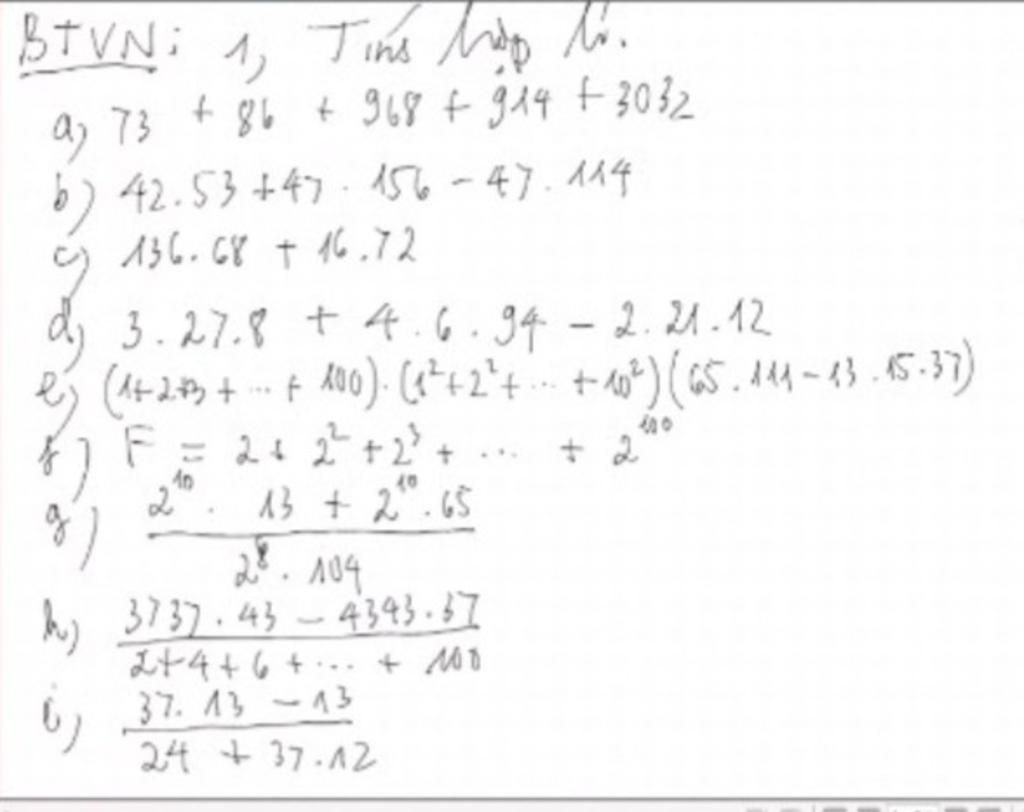 BTVN: 1, Tính hợp lí.
a) 73 + 86 + 968 + 914 + 3032
b) 42.53 + 47.156 - 47.114
c) 136.68 + 16.72
d) 3.27.8 + 4.6.94 - 2.21.12
e) (1+2+3+...+100).(1²+2²+...+10²)(65.111-13.15.37)
f) F = 2 + 2² + 2³ + ... + 2¹⁰⁰
g) 2¹⁰.13 + 2¹⁰.65
2⁸.104
h) 3737.43 - 4343.37
2+4+6+...+100
i) 37.13 - 13
24 + 37.12